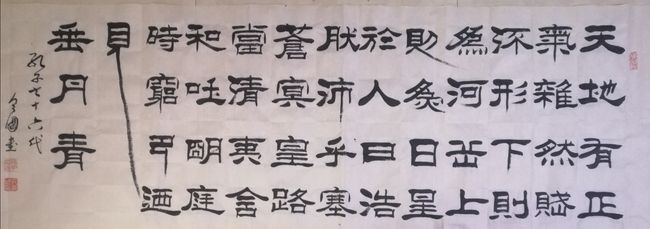 天地有正
氣雜然賦
流形下則
為河岳上
則為日星
於人曰浩
肰沛乎塞
蒼冥皇路
當清夷含
和吐明庭
時窮卩迺
見
垂丹青
孔子七十六代
令國書